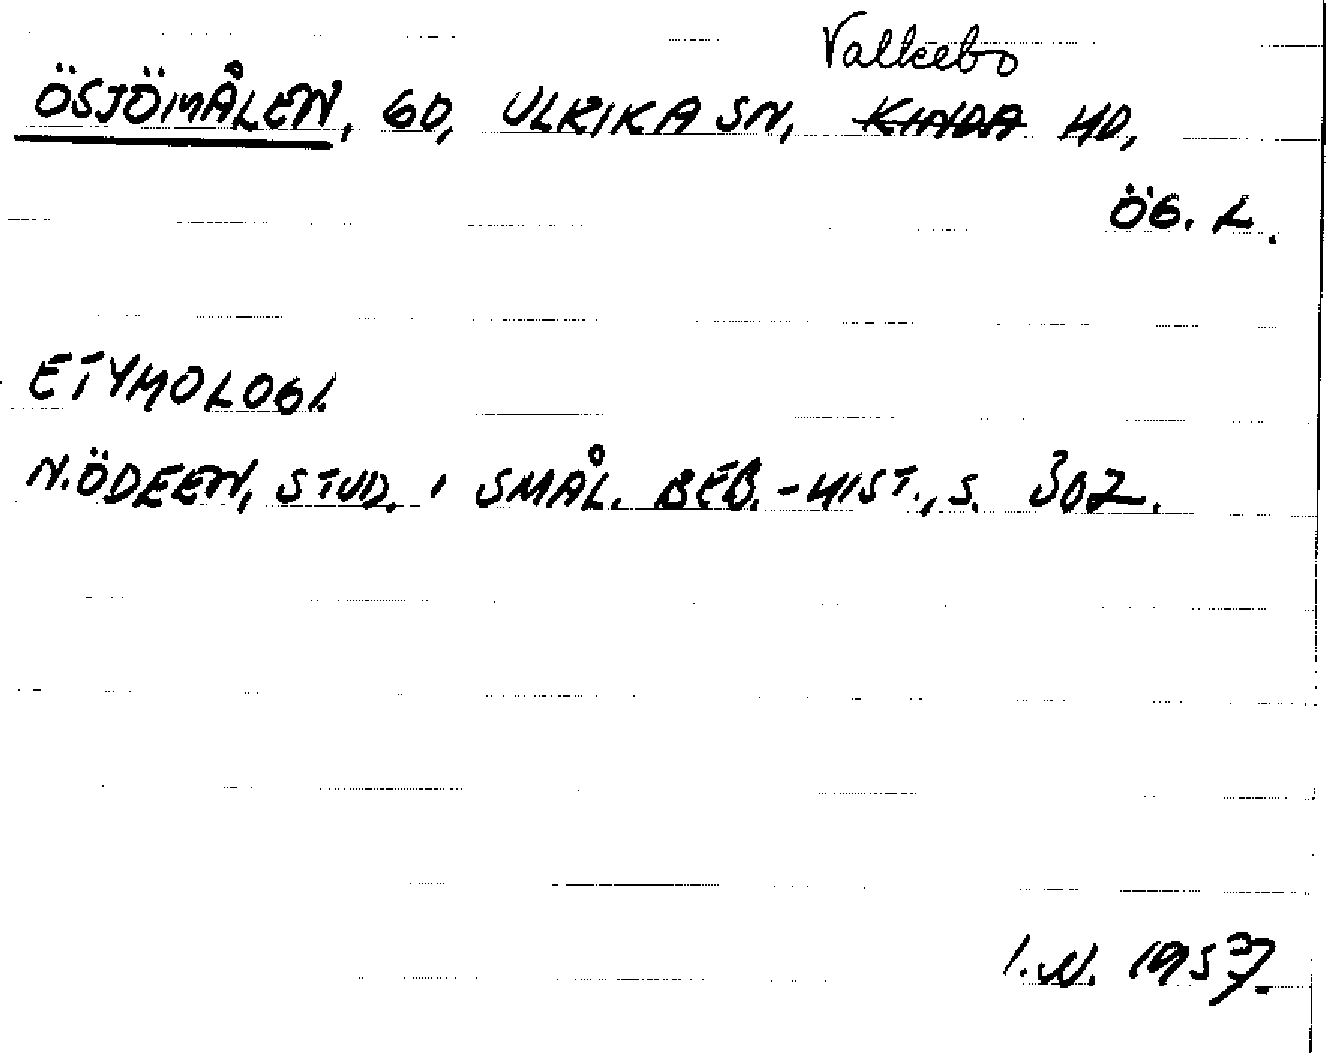 Valkebo
ÖSJÖMÅLEN, GD, ULRIKA SN, KINDA HD,
ÖG. L.
ETYMOLOGI.
N. ÖDEEN, STUD. I SMÅL. BEB.-HIST., S. 302.
I.N. 1957.